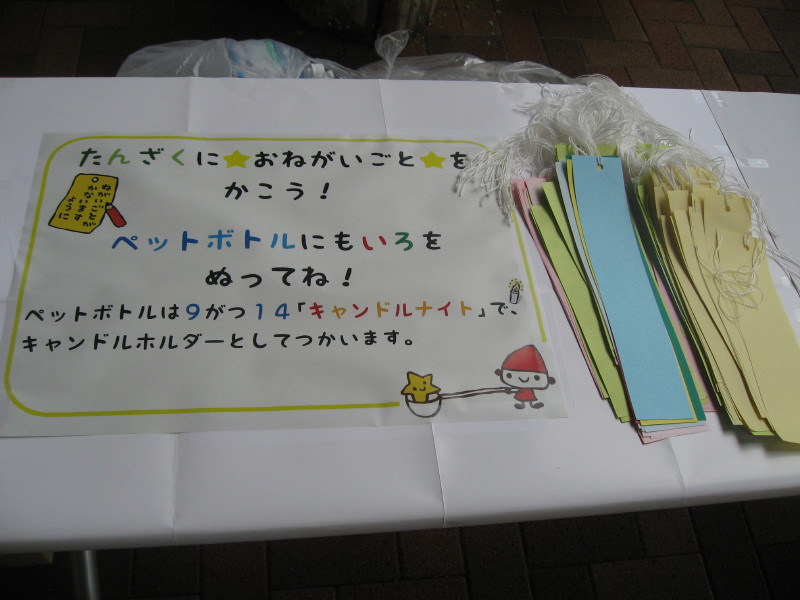 たんざくに★おねがいごと★を
かこう！
ねがいごとが
かないます
ように
ペットボトルにもいろを
ぬってね！
ペットボトルは9がつ14「キャンドルナイト」で、
キャンドルホルダーとしてつかいます。